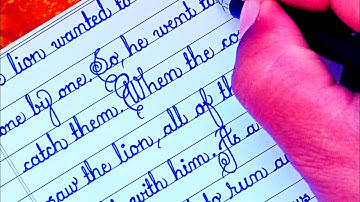 lion wanted to
one by one. So, he went to
catch them. When the co
saw the lion, all of th
with him. As a
to run a